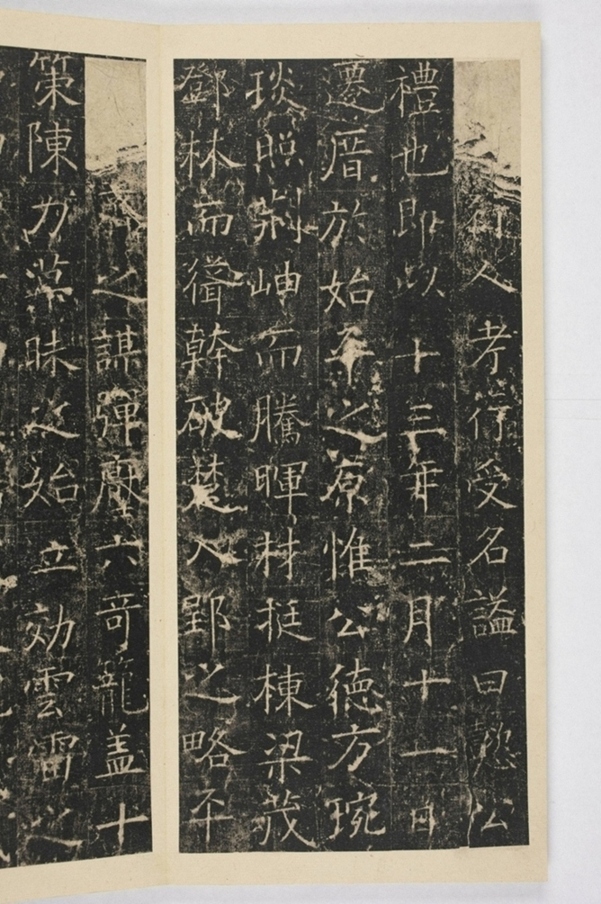 行人考行受名謚曰懿公
禮也即以十三年二月十一日
遷厝於始平之原惟公德方琬
琰照荊岫而騰暉材挺棟梁茂
鄧林而聳幹破楚入郢之略平
齊之謀彈壓六奇籠盖十
策陳力草昧之始立効雲雷之